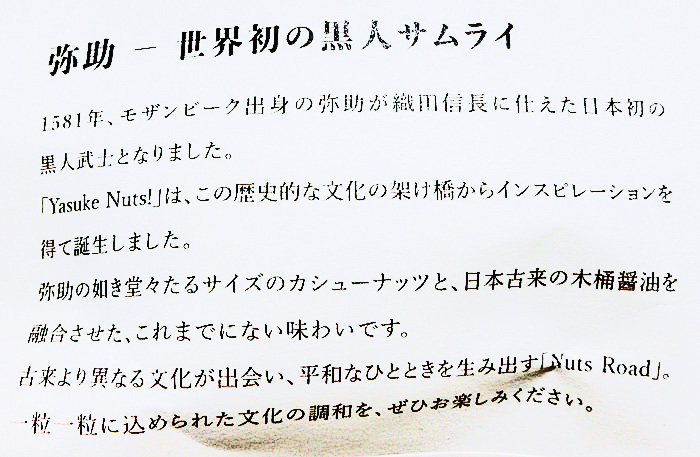 弥助 － 世界初の黒人サムライ
1581年、モザンビーク出身の弥助が織田信長に仕えた日本初の
黒人武士となりました。
「Yasuke Nuts!」は、この歴史的な文化の架け橋からインスピレーションを
得て誕生しました。
弥助の如き堂々たるサイズのカシューナッツと、日本古来の木桶醤油を
融合させた、これまでにない味わいです。
古来より異なる文化が出会い、平和なひとときを生み出す「Nuts Road」。
一粒一粒に込められた文化の調和を、ぜひお楽しみください。